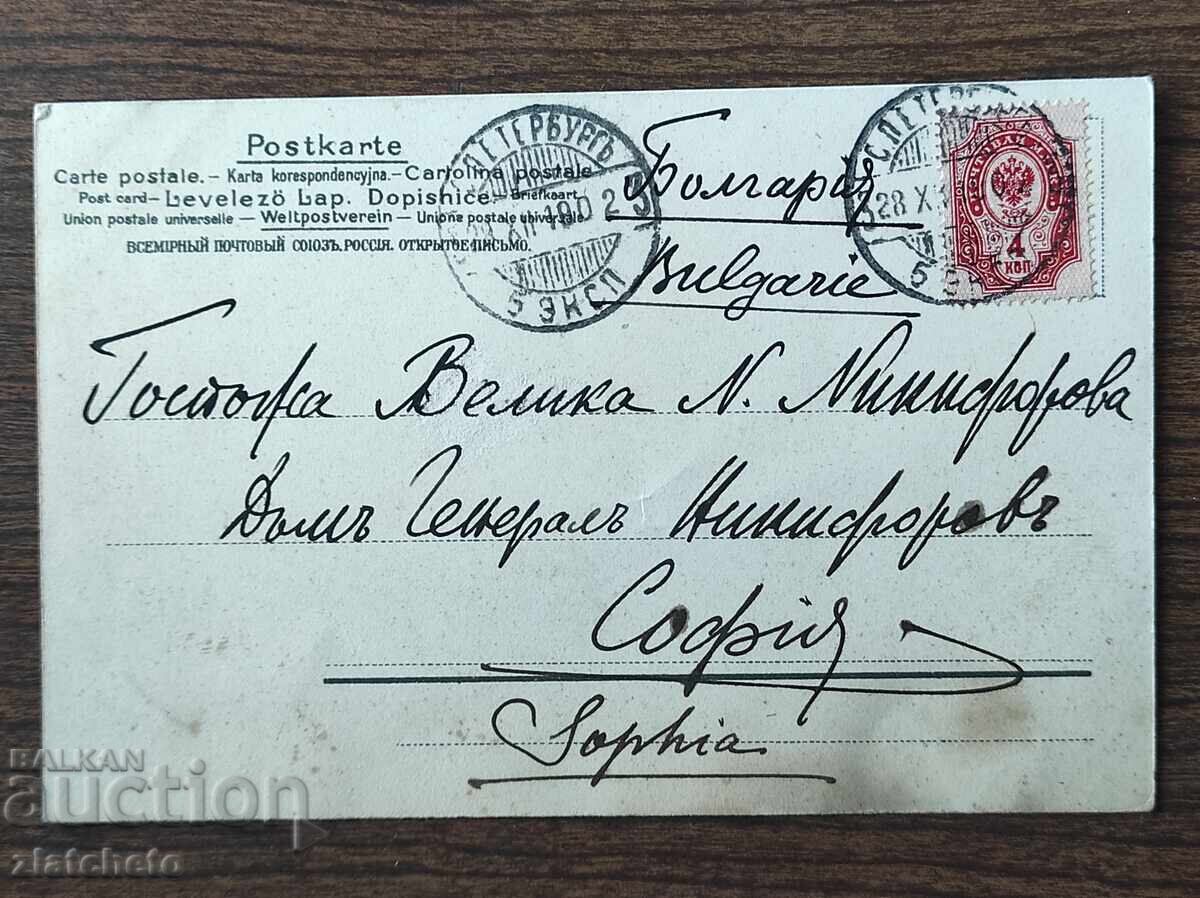 Postkarte
Carte postale. – Karta korespondencyjna. – Cartolina postale
Post card – Levelezö Lap. Dopisnice. – Briefkaart
Union postale universelle – Weltpostverein – Unione postale universale
ВСЕМІРНЫЙ ПОЧТОВЫЙ СОЮЗЪ. РОССІЯ. ОТКРЫТОЕ ПИСЬМО.
ПЕТЕРБУРГЪ
5 ЭКСП
Болгария
Bulgarie
С.ПЕТЕРБ
28 X
4
КОП
Госпожа Велика N. Никифорова
Домъ Генералъ Никифоровъ
Софія
Sophia
BALKAN
auction
zlatcheto